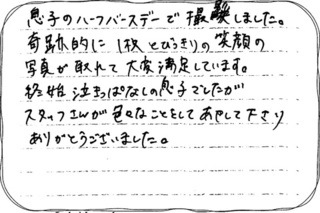 息子のハーフバースデーで撮影しました。
奇跡的に1枚とびきりの笑顔の
写真が取れて大変満足しています。
終始泣きっぱなしの息子でしたが
スタッフさんが色々なことをしてあやして下さり
ありがとうございました。